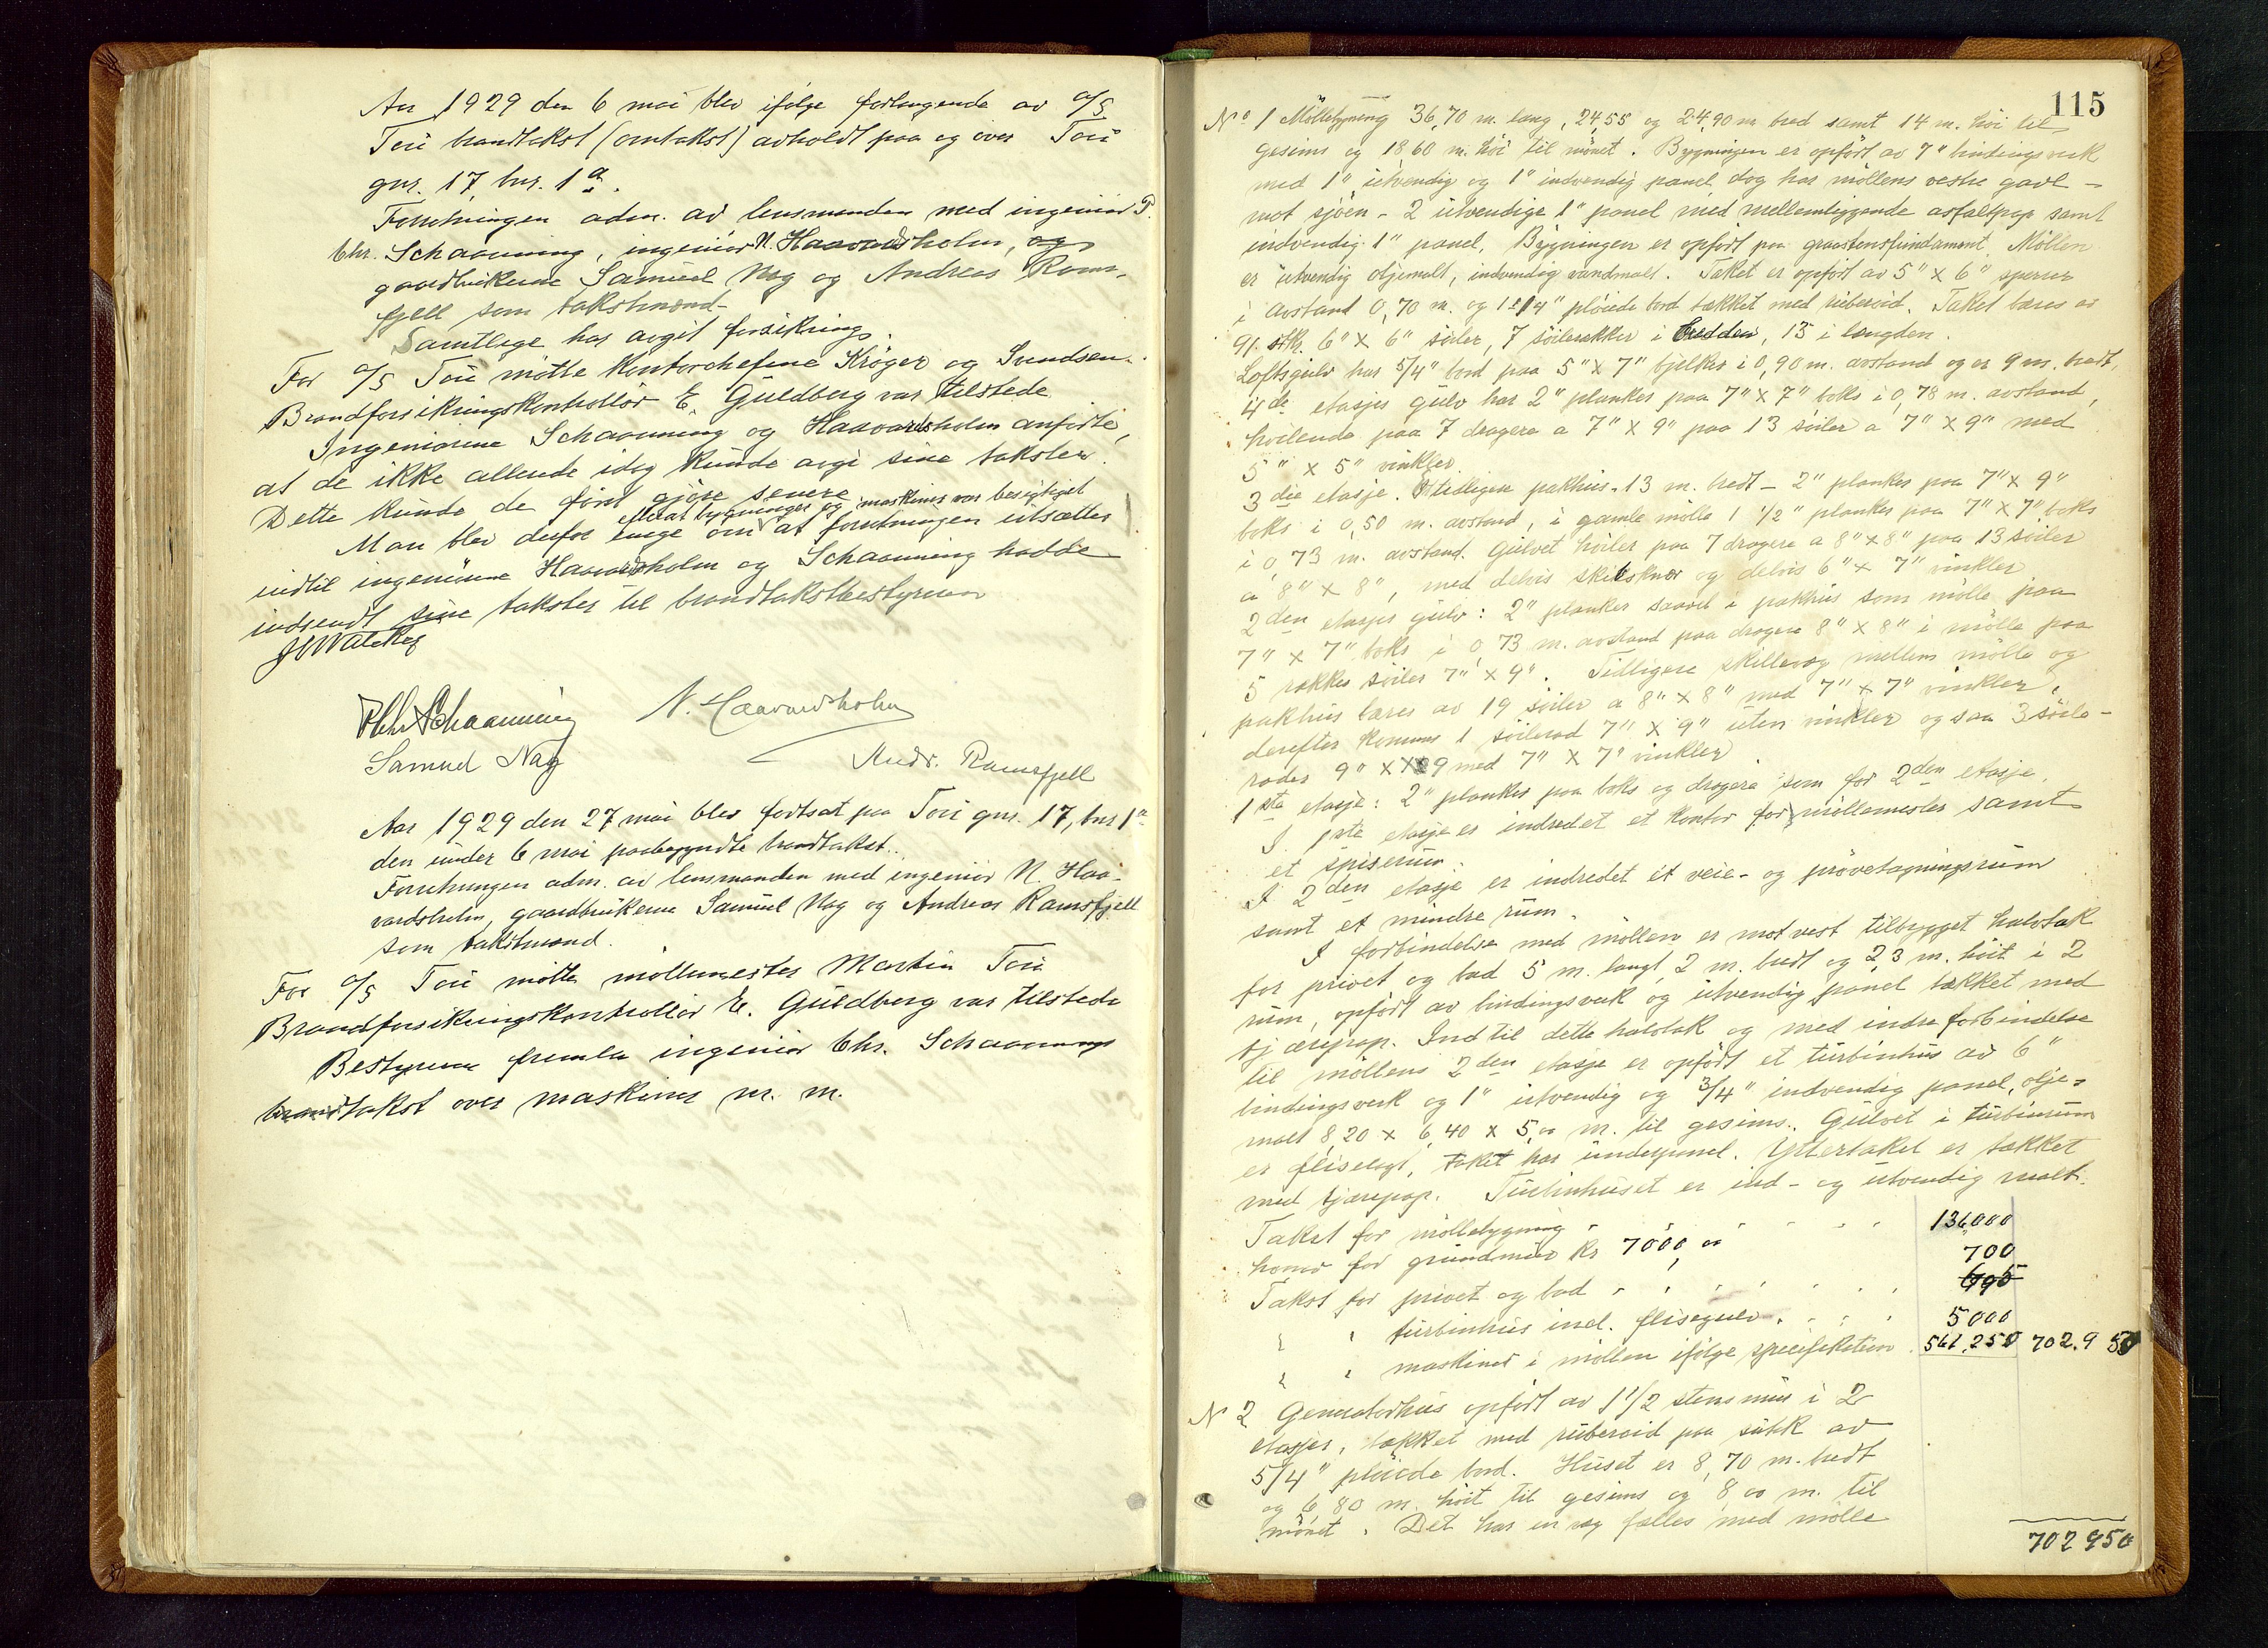 Aar 1929 den 6 mai blev ifølge forlangende av a/s
Tou brandtakst (omtakst) avholdt paa og over Tou
gnr. 17, bnr. 1a.
Forretningen adm. av lensmanden med ingeniør P.
Chr. Schaanning, ingeniør N. Haavardsholm, og
gaardbrukerne Samuel Nag og Andreas Rams-
fjell som takstmænd
Samtlige har avgit forsikring.
For a/s Tou møtte kontorchefene Krøger og Svendsen.
Brandforsikringskontrollør E. Guldberg var tilstede.
Ingeniørene Schaanning og Haavardsholm anførte,
at de ikke allerede idag kunde avgi sine takster.
Dette kunde de først gjøre senere
efterat bygninger og maskiner var besigtiget
Man blev derfor enige om at forretningen utsættes
indtil ingeniørene Haavardsholm og Schaanning hadde
indsendt sine takster til brandtakstbestyreren

P Chr Schaanning N. Haavardsholm
Samuel Nag Andr. Ramsfjell
Aar 1929 den 27 mai blev fortsat paa Tou gnr. 17, bnr 1a
den under 6 mai paabegyndte brandtakst.
Forretningen adm. av lensmanden med ingeniør N. Haa-
vardsholm, gaardbrukerne Samuel Nag og Andreas Ramsfjell
som takstmænd.
For a/s Tou møtte møllemester Martin Tou
Brandforsikringskontrollør E. Guldberg var tilstede
Bestyreren fremla ingeniør Chr. Schaannings
brandtakst over maskiner m. m.
115
No 1 Møllebygning 36,70 m. lang, 24,55 og 24,90 m bred samt 14 m. høi til
gesims og 18,60 m. høi til mønet. Bygningen er opført av 7" bindingsverk
med 1" utvendig og 1" indvendig panel, dog har møllens vestre gavl -
mot sjøen - 2 utvendige 1" panel med mellemliggende asfaltpap samt
indvendig 1" panel. Bygningen er opført paa graastensfundament. Møllen
er utvendig oljemalt, indvendig vandmalt. Taket er opført av 5" x 6" sperrer
i avstand 0,70 m. og 1 1/4" pløiede bord tækket med ruberoid. Taket bæres av
91 stk. 6" x 6" søiler, 7 søilerækker i bredden, 13 i længden.
Loftsgulv har 5/4" bord paa 5" x 7" bjelker i 0,90 m. avstand og er 9 m. bredt.
4de etasjes gulv har 2" planker paa 7" x 7" boks i 0,78 m. avstand,
hvilende paa 7 dragere a 7" x 9" paa 13 søiler a 7" x 9" med
5" x 5" vinkler.
3die etasje. tidligere pakhus - 13 m. bredt - 2" planker paa 7" x 9"
boks i 0,50 m. avstand, i gamle mølle 1 1/2" planker paa 7" x 7" boks
i 0,73 m. avstand. Gulvet hviler paa 7 dragere a 8" x 8" paa 13 søiler
a 8" x 8", med delvis skibsknær og delvis 6" x 7" vinkler
2den etasjes gulv: 2" planker saavel i pakhus som mølle paa
7" x 7" boks i 0,73 m. avstand paa dragere 8" x 8" i mølle paa
5 rækker søiler 7" x 9". Tidligere skillevæg mellem mølle og
pakhus bæres av 19 søiler a 8" x 8" med 7" x 7" vinkler,
derefter kommer 1 søilerad 7" x 9" uten vinkler og saa 3 søile-
rader 9" x 9 med 7" x 7" vinkler
1ste etasje: 2" planker paa boks og dragere som for 2den etasje.
I 1ste etasje er indredet et kontor for møllemester samt
et spiserum.
I 2den etasje er indredet et veie- og prøvetagningsrum
samt et mindre rum.
I forbindelse med møllen er mot vest tilbygget halvtak
for privet og bad 5 m. langt, 2 m. bredt og 2,3 m. høit i 2
rum, opført av bindingsverk og utvendig panel tækket med
tjærepap. Ind til dette halvtak og med indre forbindelse
til møllens 2den etasje er opført et turbinhus av 6"
bindingsverk og 1" utvendig og 3/4" indvendig panel, olje-
malt 8,20 x 6,40 x 5,00 m. til gesims. Gulvet i turbinrum
er fliselagt, taket har underpanel. Yttertaket er tækket
med tjærepap. Turbinhuset er ind- og utvendig malt.
Takst for møllebygning 136,000
hvorav for grundmur kr 7000,00 700
Takst for privet og bad
" " turbinhus incl. flisegulv 5000
" " maskiner i møllen ifølge spesifikation 561.250 702.950
No 2 Generatorhus opført av 1 1/2 stens mur i 2
etasjer, tækket med ruberoid paa sutak av
5/4" pløiede bord. Huset er 8,70 m. bredt
og 6,80 m. høit til gesims og 8,00 m. til
mønet. Det har en væg fælles med mølle
702 950